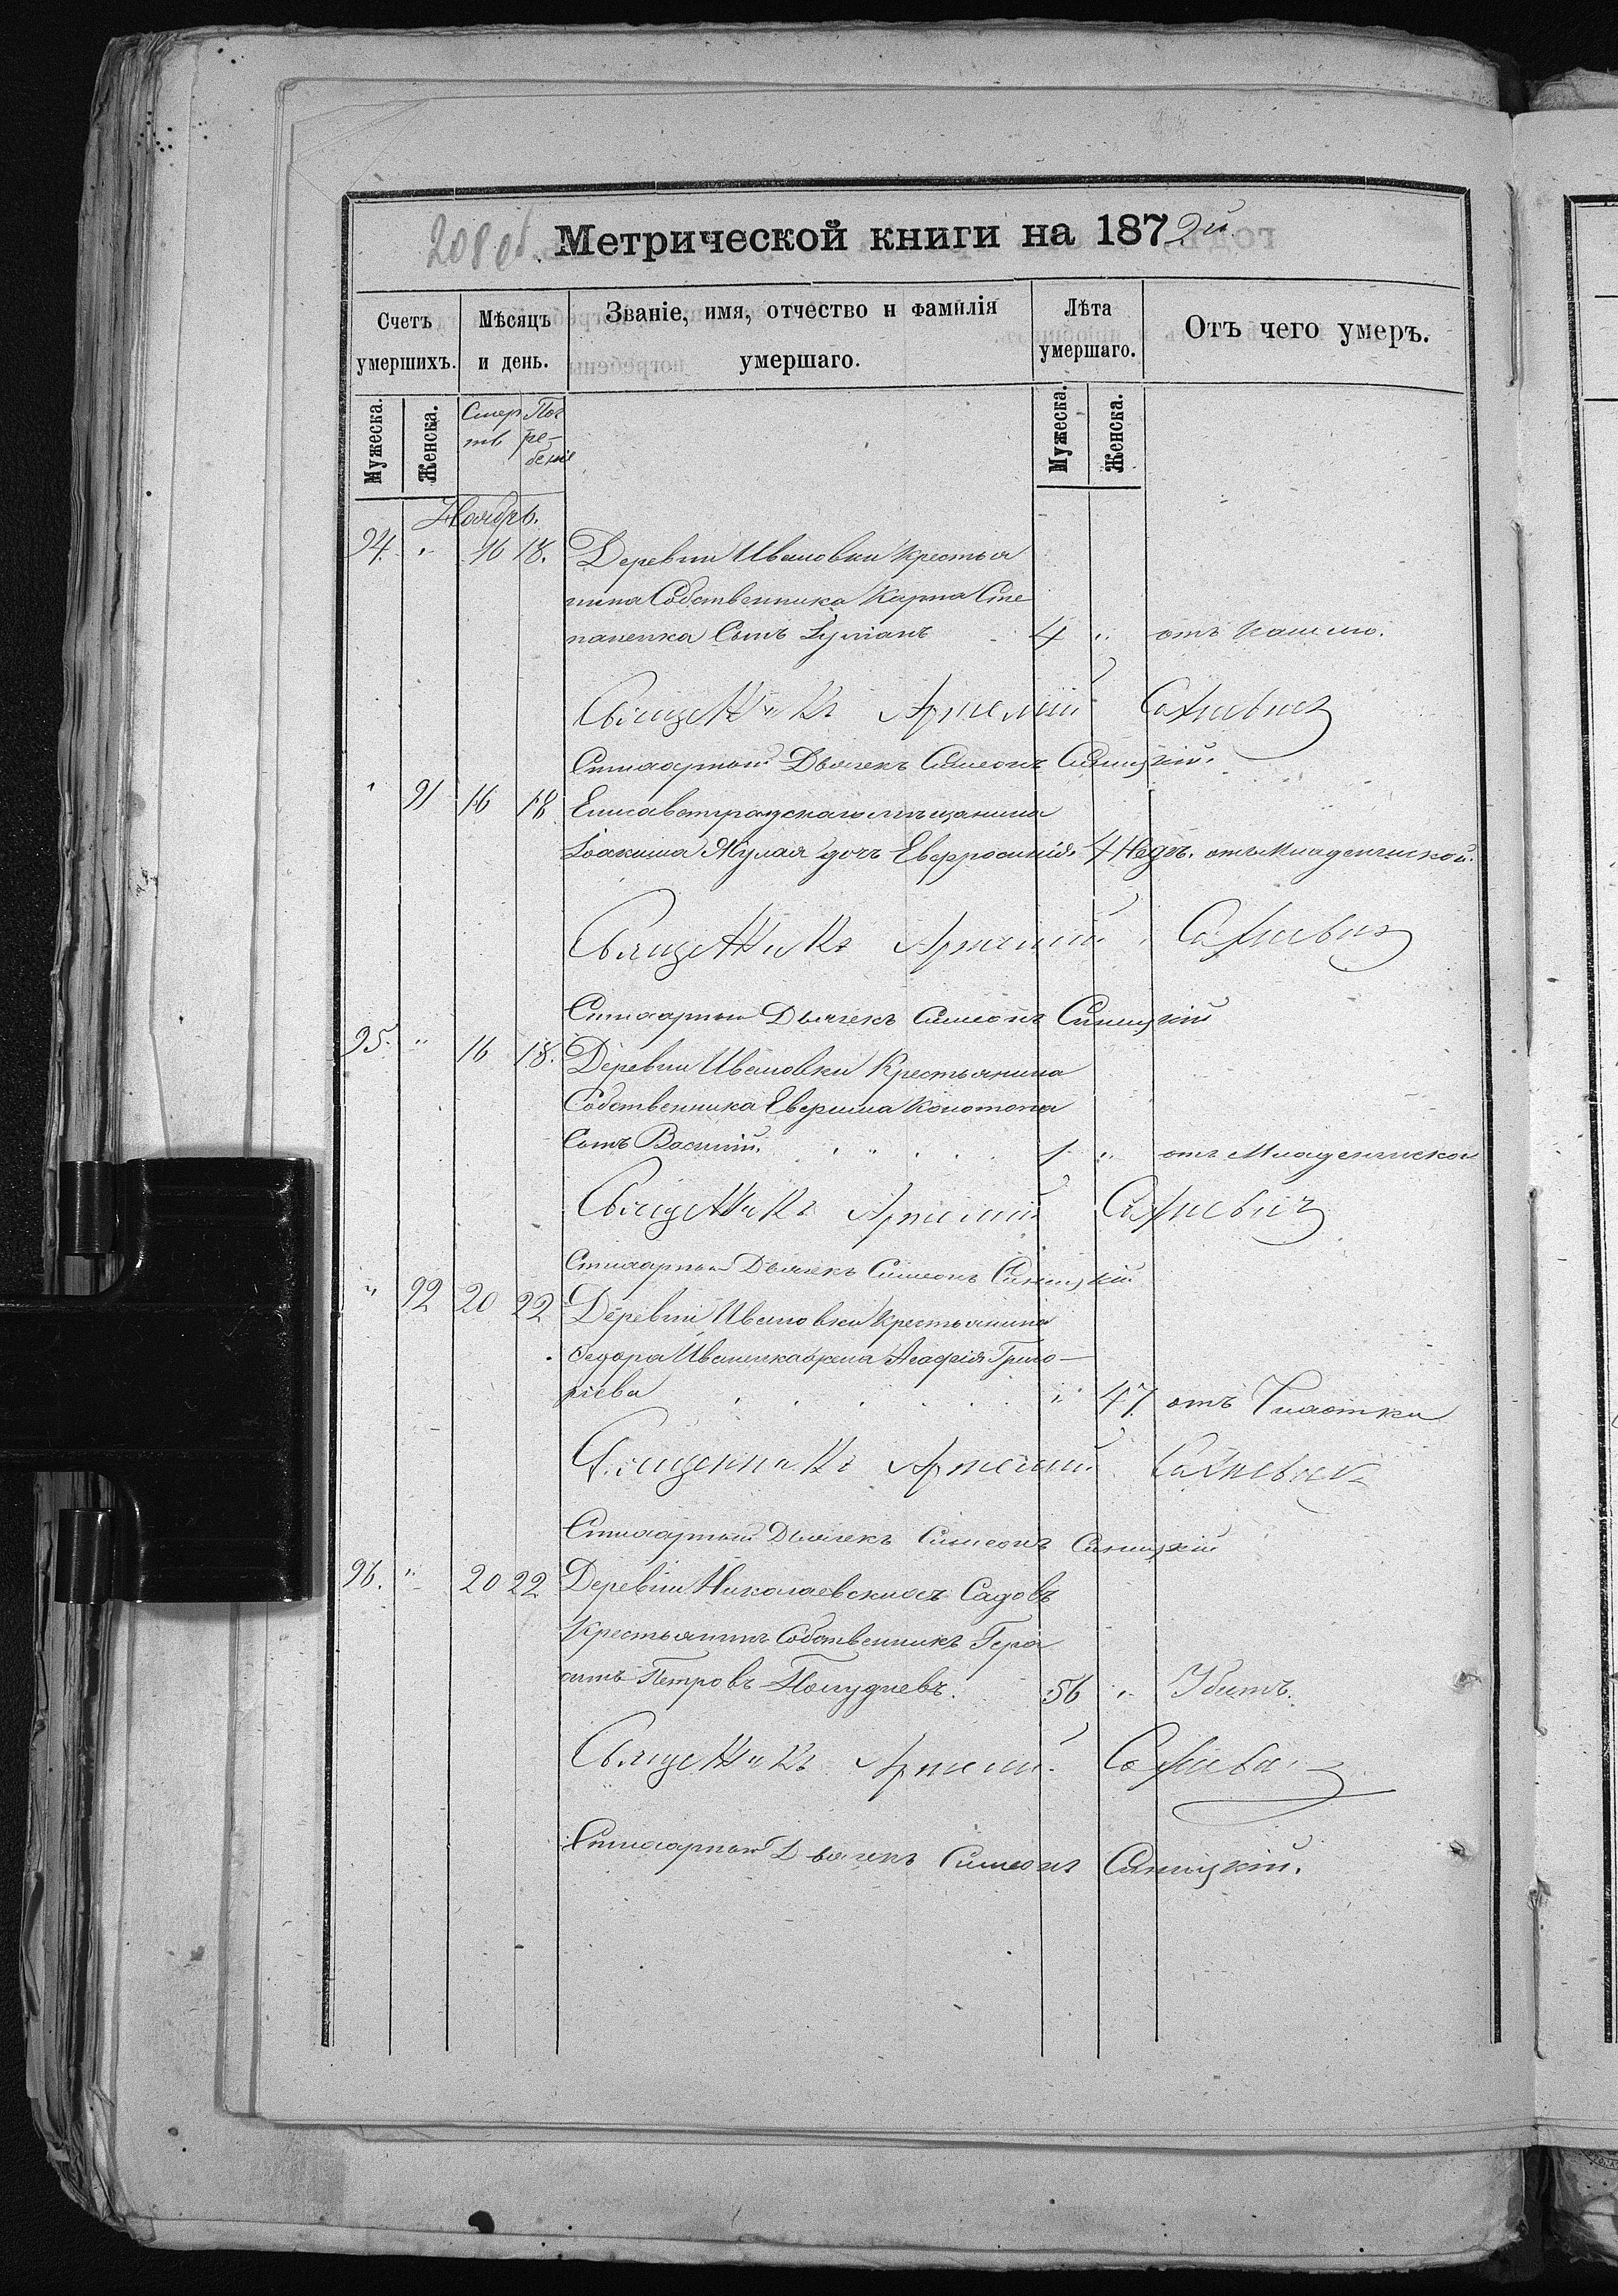 208 об. Метрической книги на 1872й
Счетъ умершихъ. Мѣсяцъ и день. Званіе, имя, отчество и фамилія умершаго. Лѣта умершаго. Отъ чего умеръ.
Мужеска. Женска. Смерть Погребенія Мужеска. Женска.
Ноябрь.
94. " 16 18. Деревни Ивановки крестья
нина Собственника Карпа Сте
паненка Сынъ Іуліанъ 4 " отъ кашлю.
Священникъ Артемій Сахневичъ
Стихарный Дьячекъ Симеонъ Синицкій.
" 91 16 18. Елисаветградскаго мѣщанина
Іоакима Мулая дочь Евфросинія 4 Недѣ. отъ Младенческой.
Священникъ Артемій Сахневичъ
Стихарный Дьячекъ Симеонъ Синицкій
95. " 16 18. Деревни Ивановки Крестьянина
Собственника Евфима Конотопа
Сынъ Василій. 1 " отъ Младенческой
Священникъ Артемій Сахневичъ
Стихарный Дьячекъ Симеонъ Синицкій
" 92 20 22 Деревни Ивановки Крестьянина
Федора Иваненка жена Агафія Григо-
ріева " 47. отъ Чахотки
Священникъ Артемій Сахневичъ
Стихарный Дьячекъ Симеонъ Синицкій
96. " 20 22 Деревни Николаевскихъ Садовъ
Крестьянинъ Собственникъ Гера
симъ Петровъ 56 " Убитъ.
Священникъ Артемій Сахневичъ
Стихарный Дьячекъ Симеонъ Синицкій.